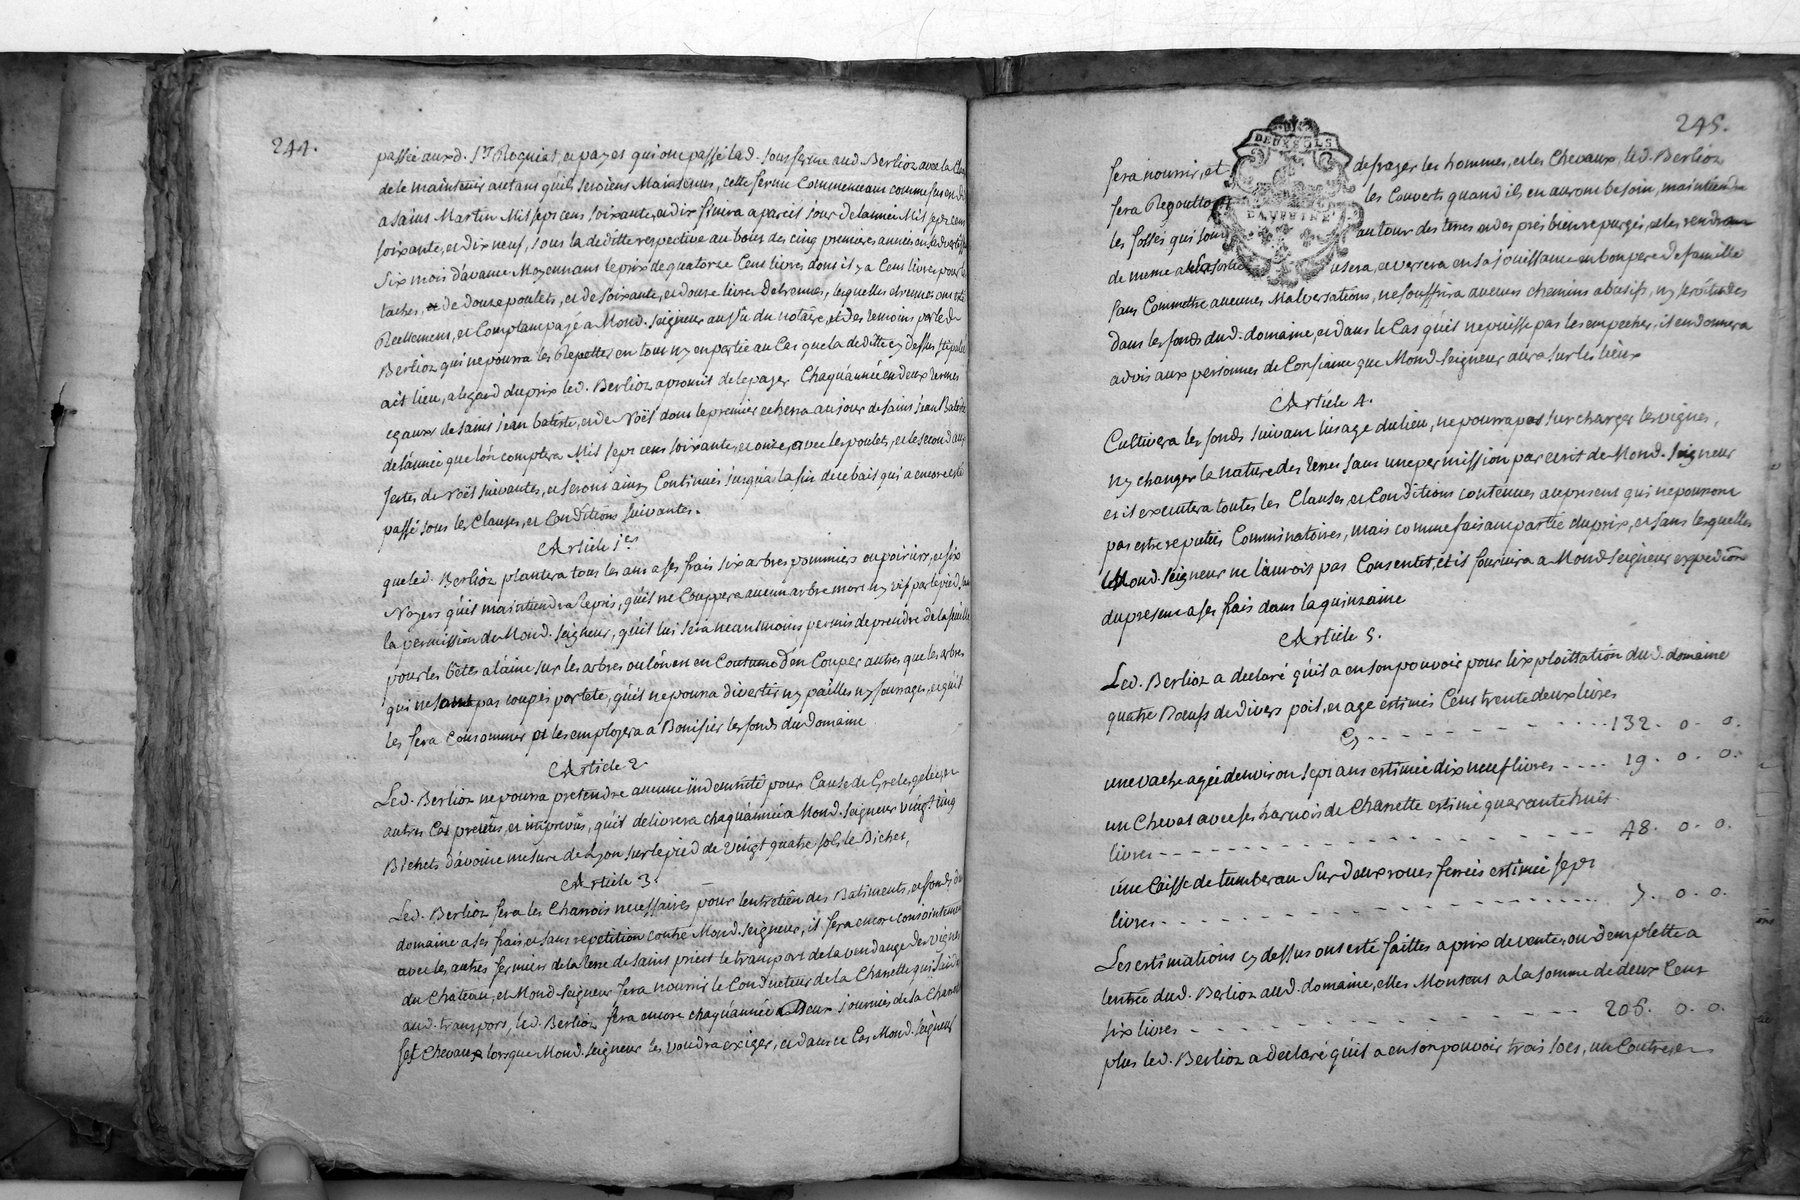 244.
passée auxd. Srs Rogniat, et payet qui ont passé lad. sousferme aud. Berlioz avec la
de le maintenir autans qu'ils seroiens Maintenus, cette ferme Commencant comme sus en dit
a saint Martin Mil sept cens soixante, et dix finira a pareil jour de l'année Mil sept cens
soixante, et dix neuf, sous la deditte respective au bout des cinq premieres années en s'advertissant
six mois d'avance Moyennant le prix de quatorze Cent livres dont il y a Cent livres pour les
taches, et de douze poulets, et de soixante, et douze livres d'etrennes, lesquelles etrennes ont eté
Reellement, et Comptant payé a Mond. seigneur au sû du notaire, et des temoins par led.
Berlioz qui ne pourra les Repetter en tout ny en partie au Cas que la deditte cy dessus stipulée
ait lieu, a legard du prix led. Berlioz a promit de le payer Chaqu'année en deux termes
egaux de saint jean batiste, et de Noël dont le premier echerra au jour de saint jean Batiste
de l'année que l'ón comptera Mil sept cens soixante, et onze, avec les poulets, et le second aux
festes de Noël suivantes, et seront ainsy Continués jusqu'a la fin de ce bail qui a encore esté
passé sous les Clauses, et Conditions suivantes.
Article 1er
que led. Berlioz plantera tous les ans a ses frais six arbres pommiers ou poiriers, et six
Noyers qu'il maintiendra Repris, qu'il ne Couppera aucun arbre mort ny vif par le pied sans
la permission de Mond. seigneur, qu'il lui sera neantmoins permis de prendre de la feuille
pour les bêtes a laine sur les arbres ou l'ón en en Coutume d'en Couper autres que les arbres
qui ne sont pas coupés par tete, qu'il ne pourra divertir ny pailles ny fourrages, et qu'il
les fera Consommer et les employera a Bonifier les fonds du domaine.
Article 2.
Led. Berlioz ne pourra pretendre aucune indemnité pour Cause de Grele, gelée, ny
autres Cas prevûs, et imprevûs, qu'il delivrera chaqu'année a Mond. seigneur vingt cinq
Bichets d'avoine mesure de Lyon sur le pied de vingt quatre sols le Bichet,
Article 3.
Led. Berlioz fera les Charrois necessaires pour l'entretien des Batiments, et fonds du
domaine a ses frais et sans repetition contre Mond. seigneur, il fera encore conjointement
avec les autres fermiers de la terre de saint priest le transport de la vendange des vignes
du Chateau, et Mond. seigneur fera nourrir le Conducteur de la Charette qui
aud. transport, led. Berlioz fera encore chaqu'année Deux journées de sa Charette
et Chevaux lorsque Mond. seigneur les voudra exiger, et dans ce Cas Mond. seigneur
245.
DEUX SOLS
DAUPHINÉ
fera nourrir, et defrayer les hommes, et les Chevaux, led. Berlioz
fera Regoutto les Couverts quand ils en auront besoin, maintiendra
les fossés qui sont autour des terres et des prés bien repurgés, et les rendra
de meme a sa sortie usera, et versera en sa jouissance en bon pere de famille
sans Commettre aucunes Malversations, ne souffrira aucuns chemins abusifs, ny servitudes
dans les fonds dud. domaine, et dans le Cas qu'il ne puisse pas les empecher, il en donnera
advis aux personnes de Confiance que Mond. seigneur aura sur les lieux
Article 4.
Cultivera les fonds suivant l'usage du lieu, ne pourra pas surcharger les vignes,
ny changer la nature des terres sans une permission par ecrit de Mond. seigneur
et il executera toutes les Clauses, et Conditions contenues au present qui ne pourront
pas estre reputées Comminatoires, mais comme faisant partie du prix, et sans lesquelles
Mond. seigneur ne l'auroit pas Consentit, et il fournira a Mond. seigneur expedion
du present a ses frais dans la quinzaine
Article 5.
Led. Berlioz a declaré qu'il a en son pouvoir pour l'exploittation dud. domaine
quatre Bœufs de divers poil, et age estimés Cent trente deux livres
Cy - - - - - - - - - - 132. 0. 0.
une vache agée denviron sept ans estimée dix neuf livres - - - - 19. 0. 0.
un Cheval avec ses harnois de Charette estimé quarante huit
livres - - - - - - - - - - 48. 0. 0.
une Caisse de tumberau sur deux roues ferrées estimée sept
livres - - - - - - - - - - 7. 0. 0.
Les estimations cy dessus ont esté faittes a prix de vente, ou d'emplette a
lentrée dud. Berlioz aud. domaine, elles Montent a la somme de deux Cent
six livres - - - - - - - - - - 206. 0. 0.
plus led. Berlioz a declaré qu'il a en son pouvoir trois socs, un Coutre, et